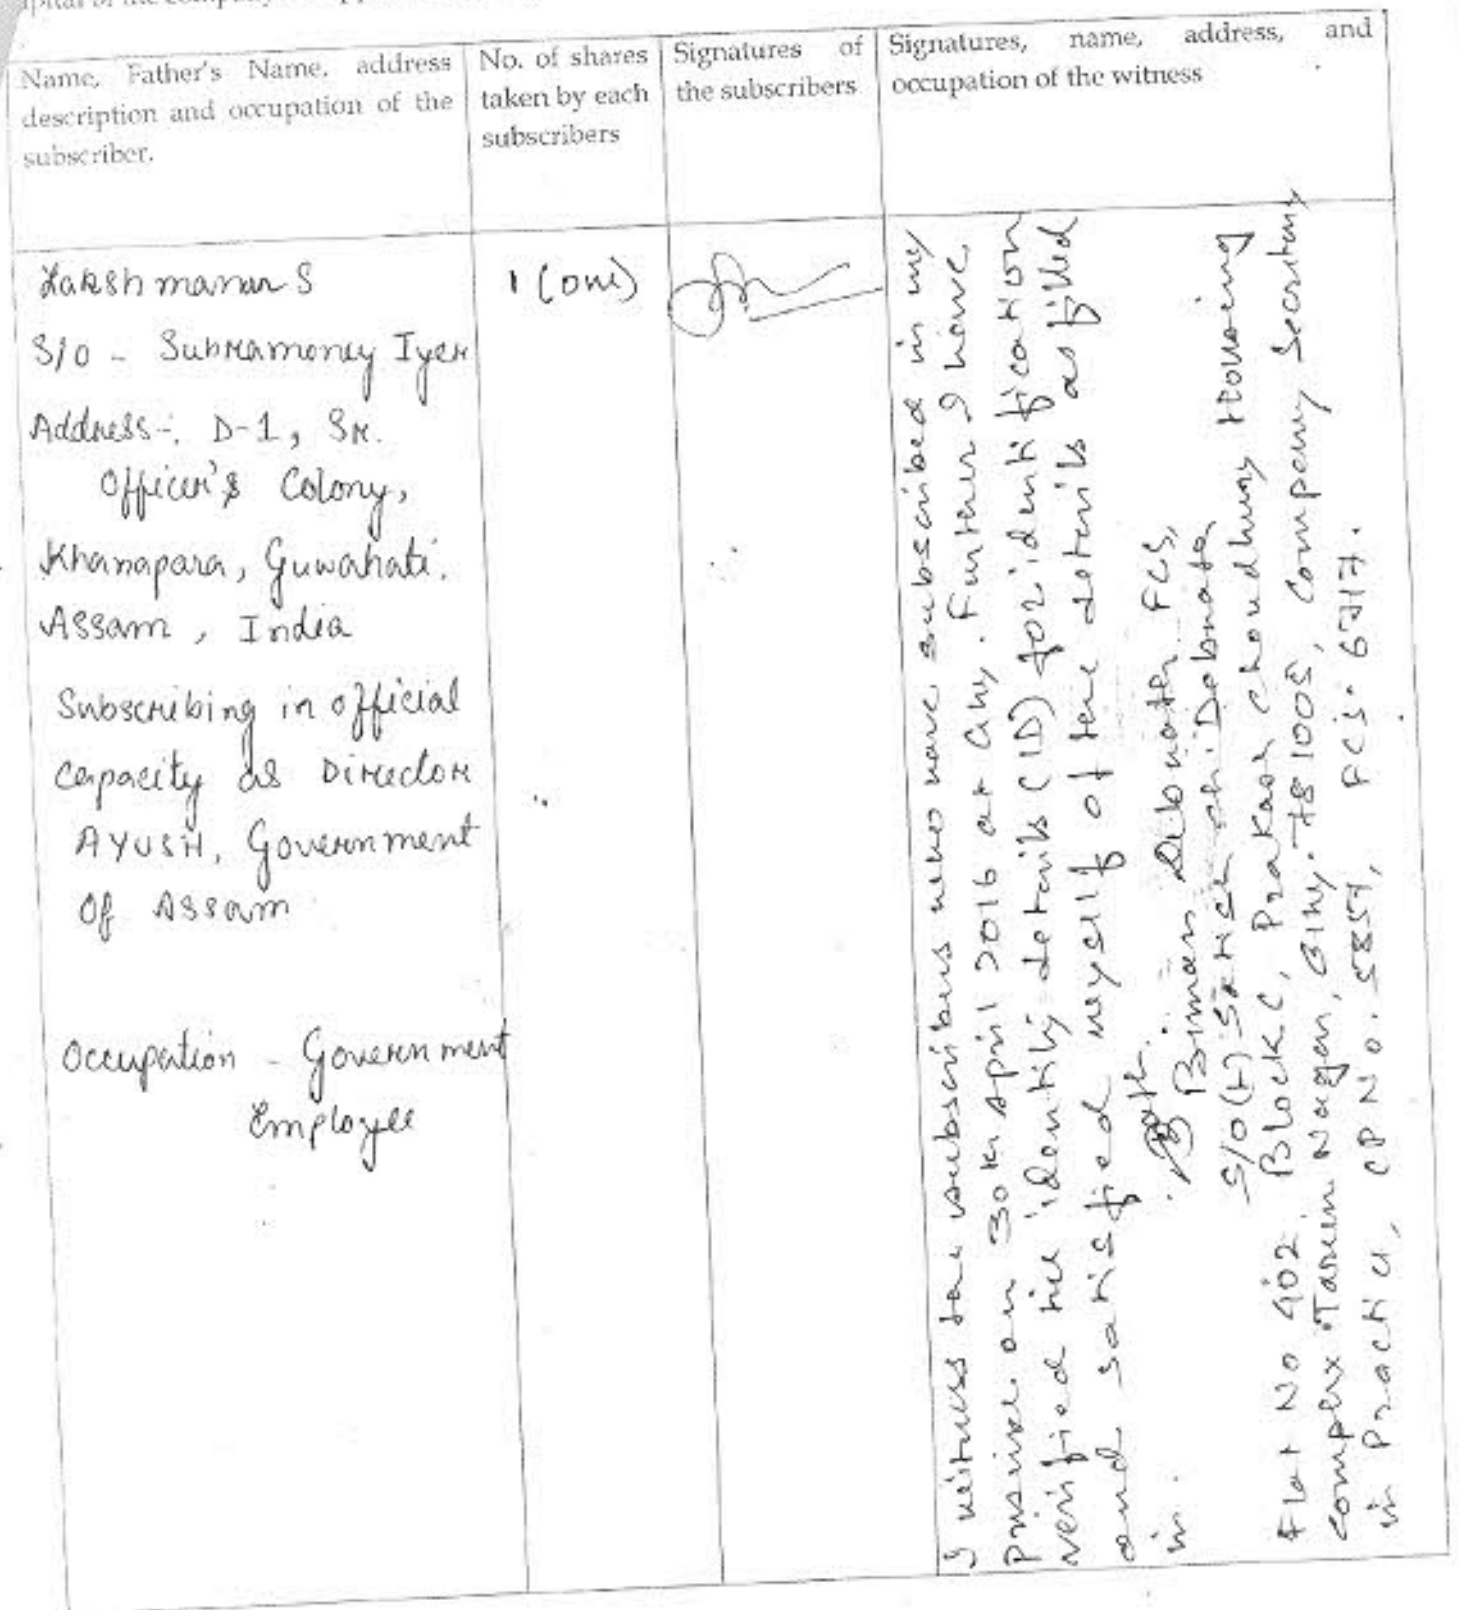 capital of the company
Name, Father's Name, address
description and occupation of the
subscriber.
No. of shares
taken by each
subscribers
Signatures of
the subscribers
Signatures, name, address, and
occupation of the witness
Lakshmanan S
S/O - Subramoney Iyer
Address-: D-1, Sr.
Officer's Colony,
Khanapara, Guwahati.
Assam, India
Subscribing in official
capacity as Director
AYUSH, Government
Of Assam
Occupation - Government
Employee
1 (one)
I witness the subscribers who have subscribed in my
presence on 30th April 2016 at Ghy. Further I have
verified the identity details (ID) for identification
and satisfied myself of the details as filled
in.
Biman Debnath FCS,
S/o (L) Satish ch. Debnath,
Flat No 402 Block C, Prakash Choudhury Housing
Complex Tarun Nagar, Ghy. 781005, Company Secretary
in Practice, CP No. 5857, FCS. 6717.